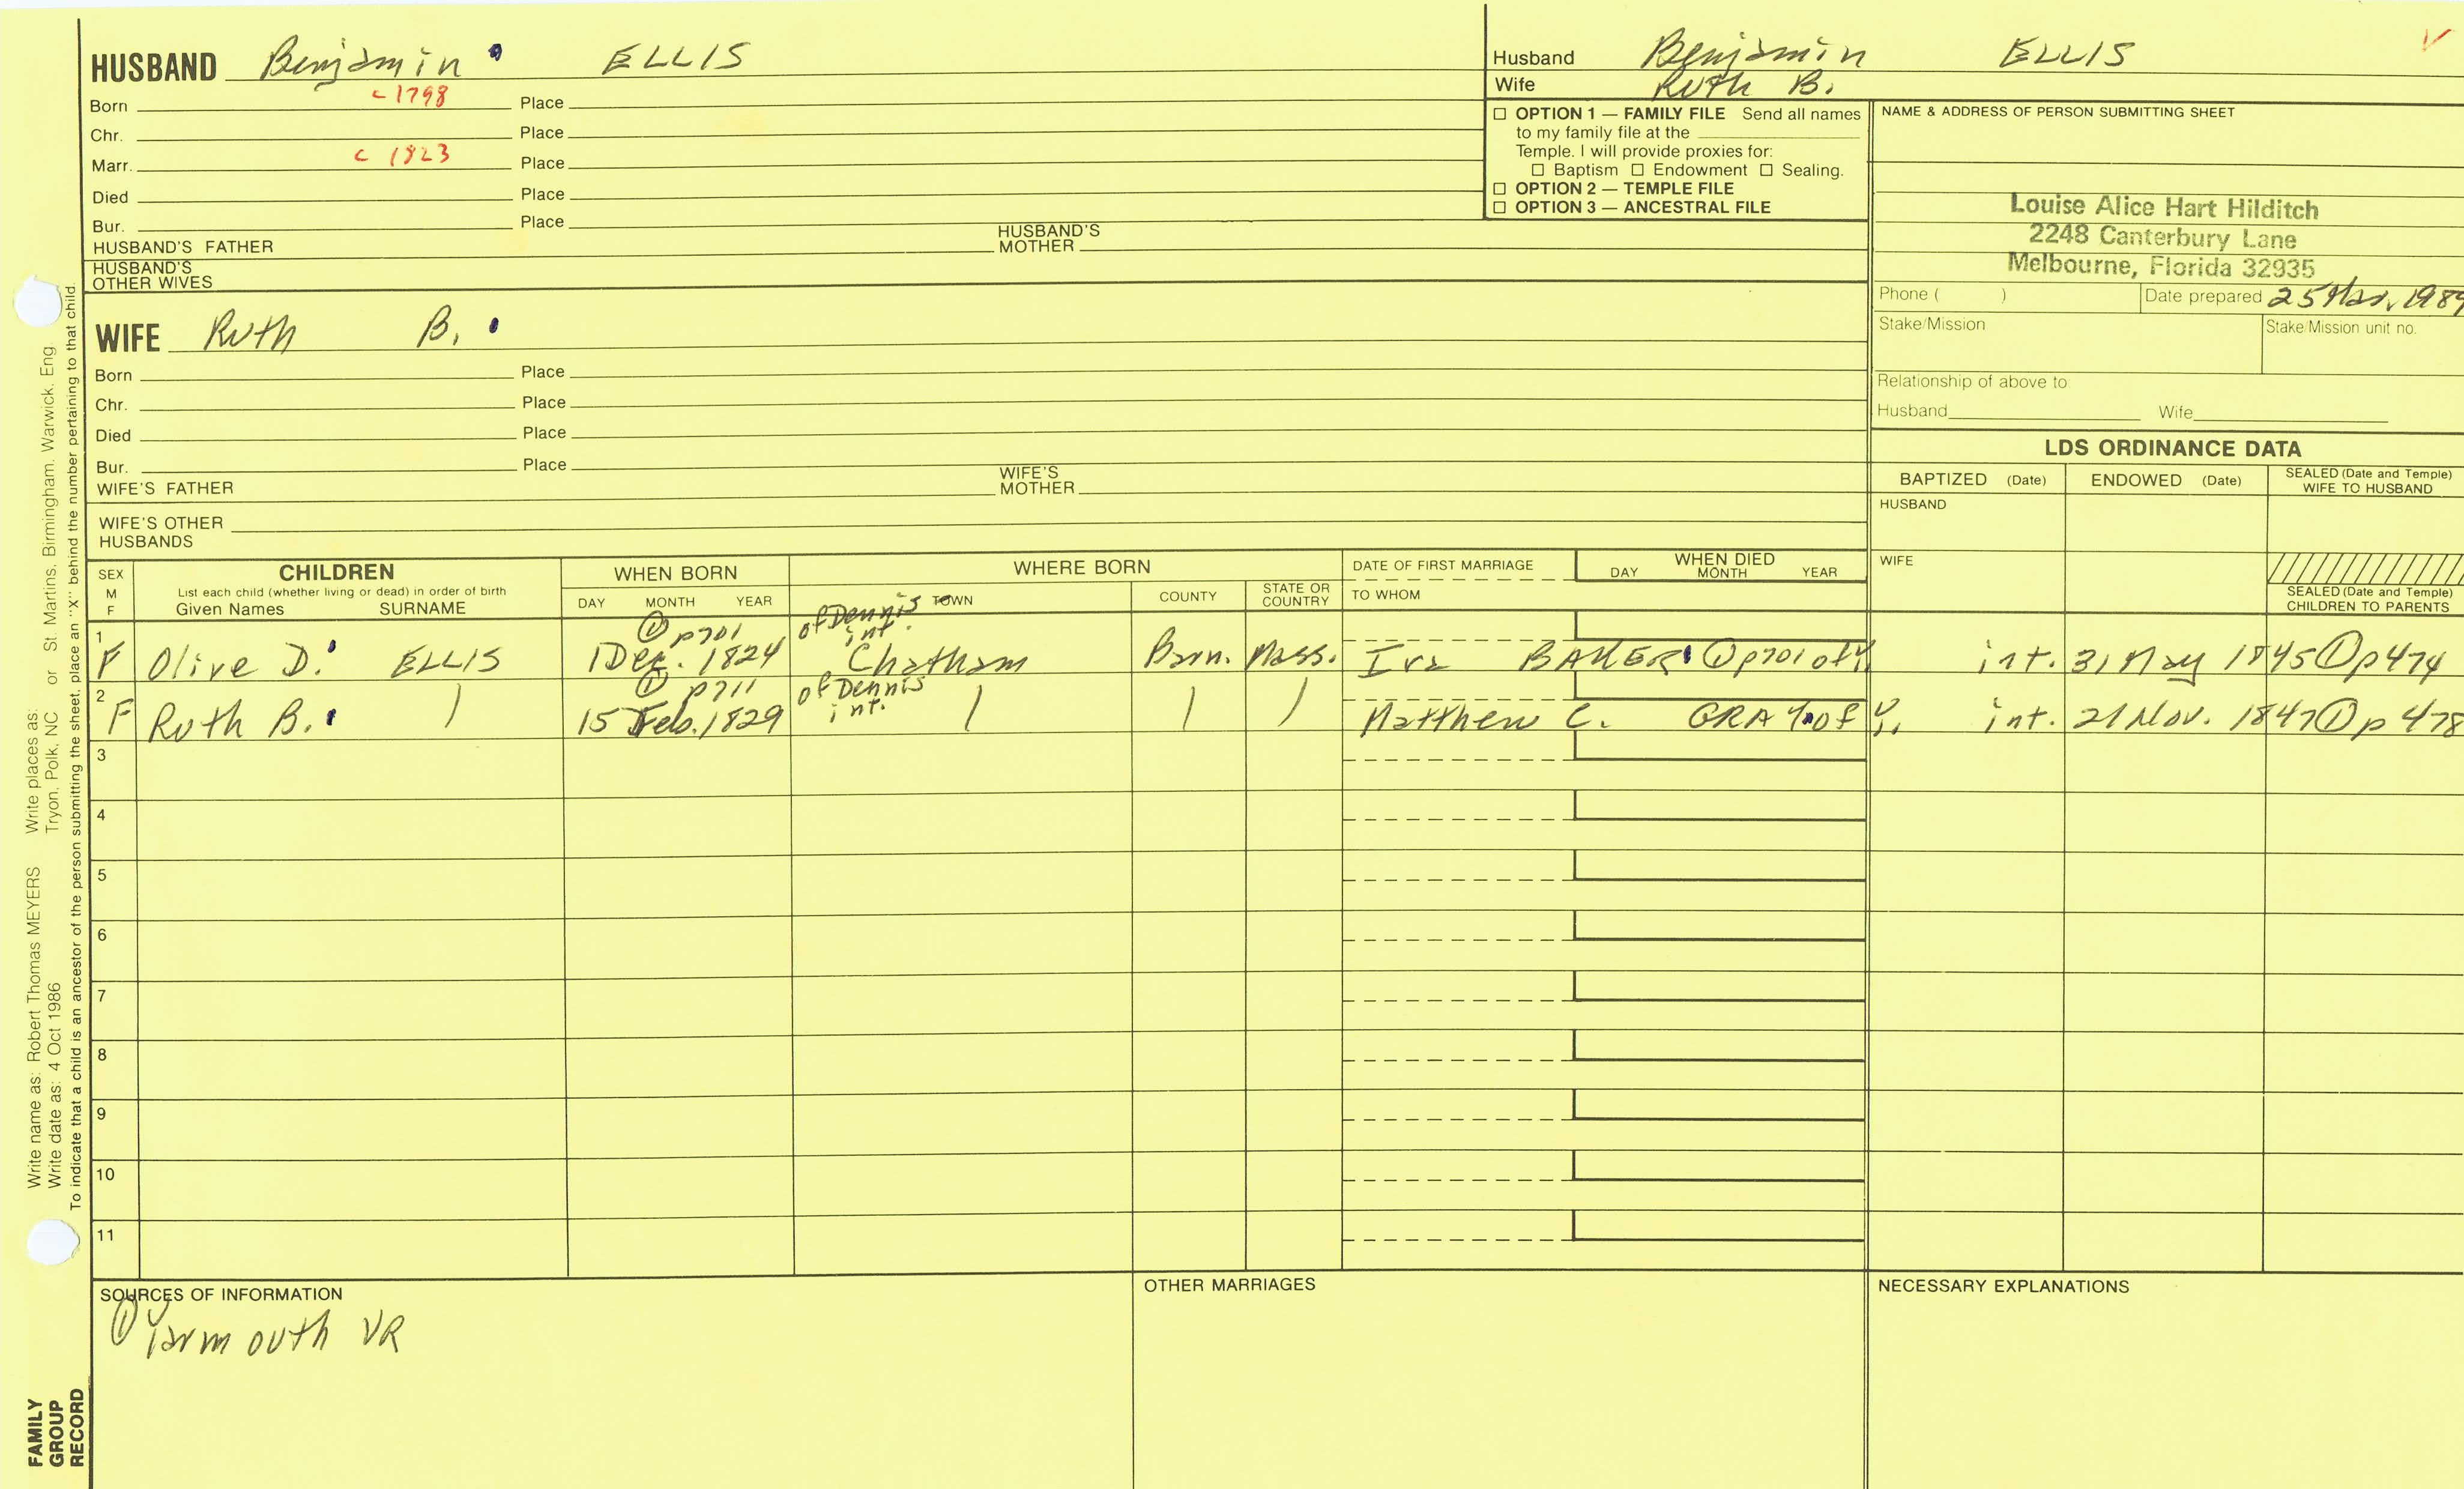 HUSBAND Benjamin ELLIS
Born c 1798 Place
Chr. Place
Marr. c 1823 Place
Died Place
Bur. Place
HUSBAND'S FATHER HUSBAND'S MOTHER
HUSBAND'S OTHER WIVES
Husband Benjamin ELLIS
Wife Ruth B.
☐ OPTION 1 — FAMILY FILE Send all names
to my family file at the
Temple. I will provide proxies for:
☐ Baptism ☐ Endowment ☐ Sealing.
☐ OPTION 2 — TEMPLE FILE
☐ OPTION 3 — ANCESTRAL FILE
NAME & ADDRESS OF PERSON SUBMITTING SHEET
Louise Alice Hart Hilditch
2248 Canterbury Lane
Melbourne, Florida 32935
Phone ( ) Date prepared 25 Mar, 1989
Stake/Mission Stake/Mission unit no.
Relationship of above to
Husband Wife
WIFE Ruth B.
Born Place
Chr. Place
Died Place
Bur. Place
WIFE'S FATHER WIFE'S MOTHER
WIFE'S OTHER
HUSBANDS
LDS ORDINANCE DATA
BAPTIZED (Date) ENDOWED (Date) SEALED (Date and Temple) WIFE TO HUSBAND
HUSBAND
WIFE
SEALED (Date and Temple)
CHILDREN TO PARENTS
SEX
M
F
CHILDREN
List each child (whether living or dead) in order of birth
Given Names SURNAME
WHEN BORN
DAY MONTH YEAR
WHERE BORN
TOWN COUNTY STATE OR COUNTRY
DATE OF FIRST MARRIAGE
TO WHOM
WHEN DIED
DAY MONTH YEAR
① p701 of Dennis int.
1 F Olive D. ELLIS 1 Dec. 1824 Chatham Barn. Mass. Ira BAKER ① p701 of Y. int. 31 May 1845 ① p474
① p711 of Dennis int.
2 F Ruth B. 15 Feb. 1829 Matthew C. GRAY of Y. int. 21 Nov. 1847 ① p 478
3
4
5
6
7
8
9
10
11
SOURCES OF INFORMATION
① Yarmouth VR
OTHER MARRIAGES
NECESSARY EXPLANATIONS
Write name as: Robert Thomas MEYERS Write places as:
Write date as: 4 Oct 1986 Tryon, Polk, NC or St. Martins, Birmingham, Warwick, Eng
To indicate that a child is an ancestor of the person submitting the sheet, place an "X" behind the number pertaining to that child.
FAMILY
GROUP
RECORD